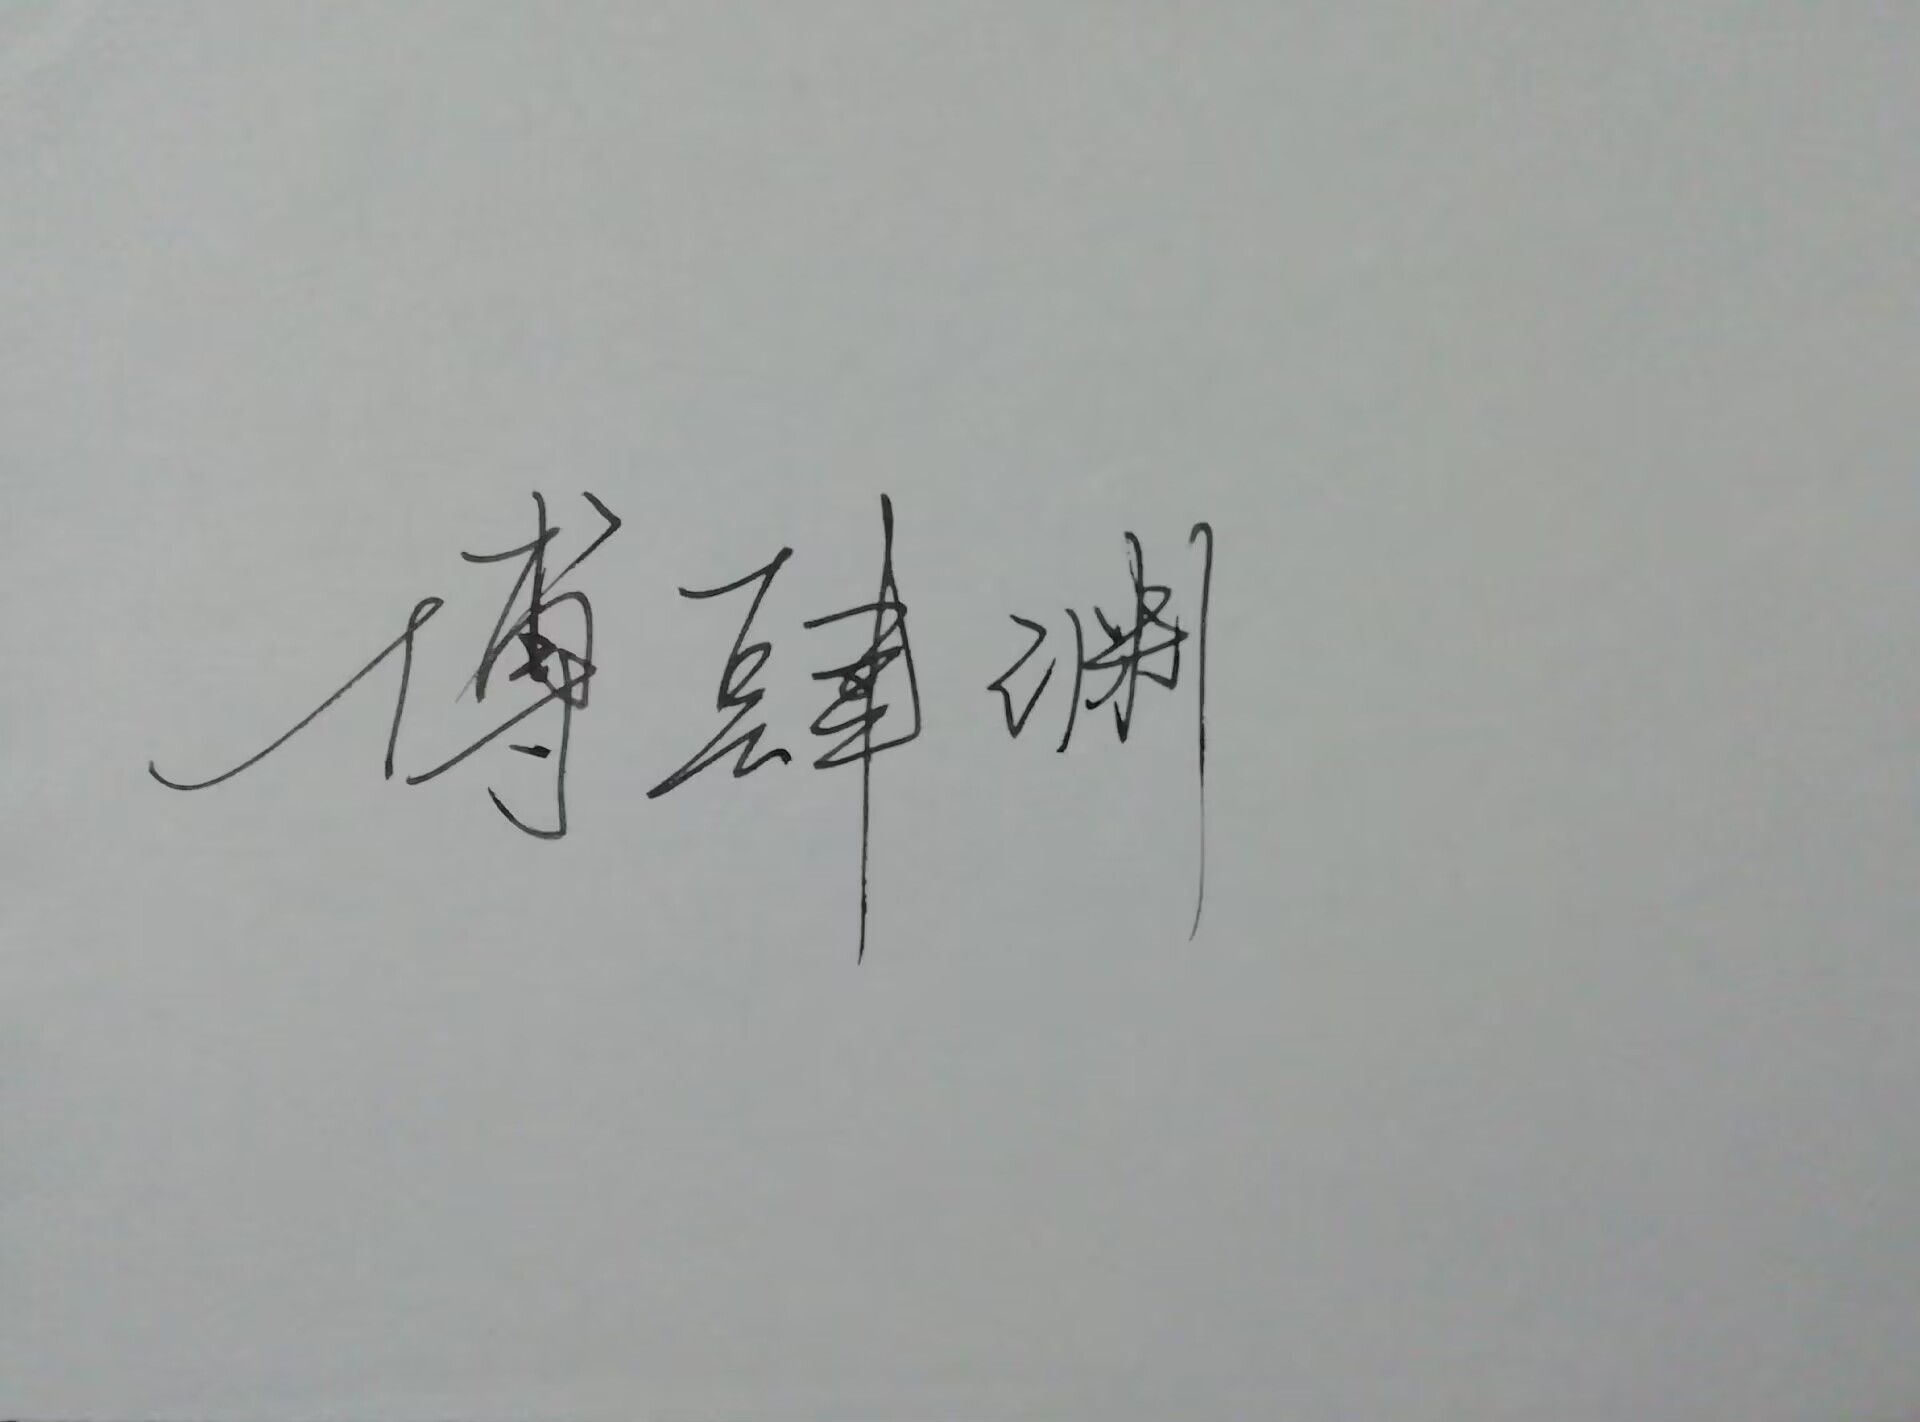 傅肆渊